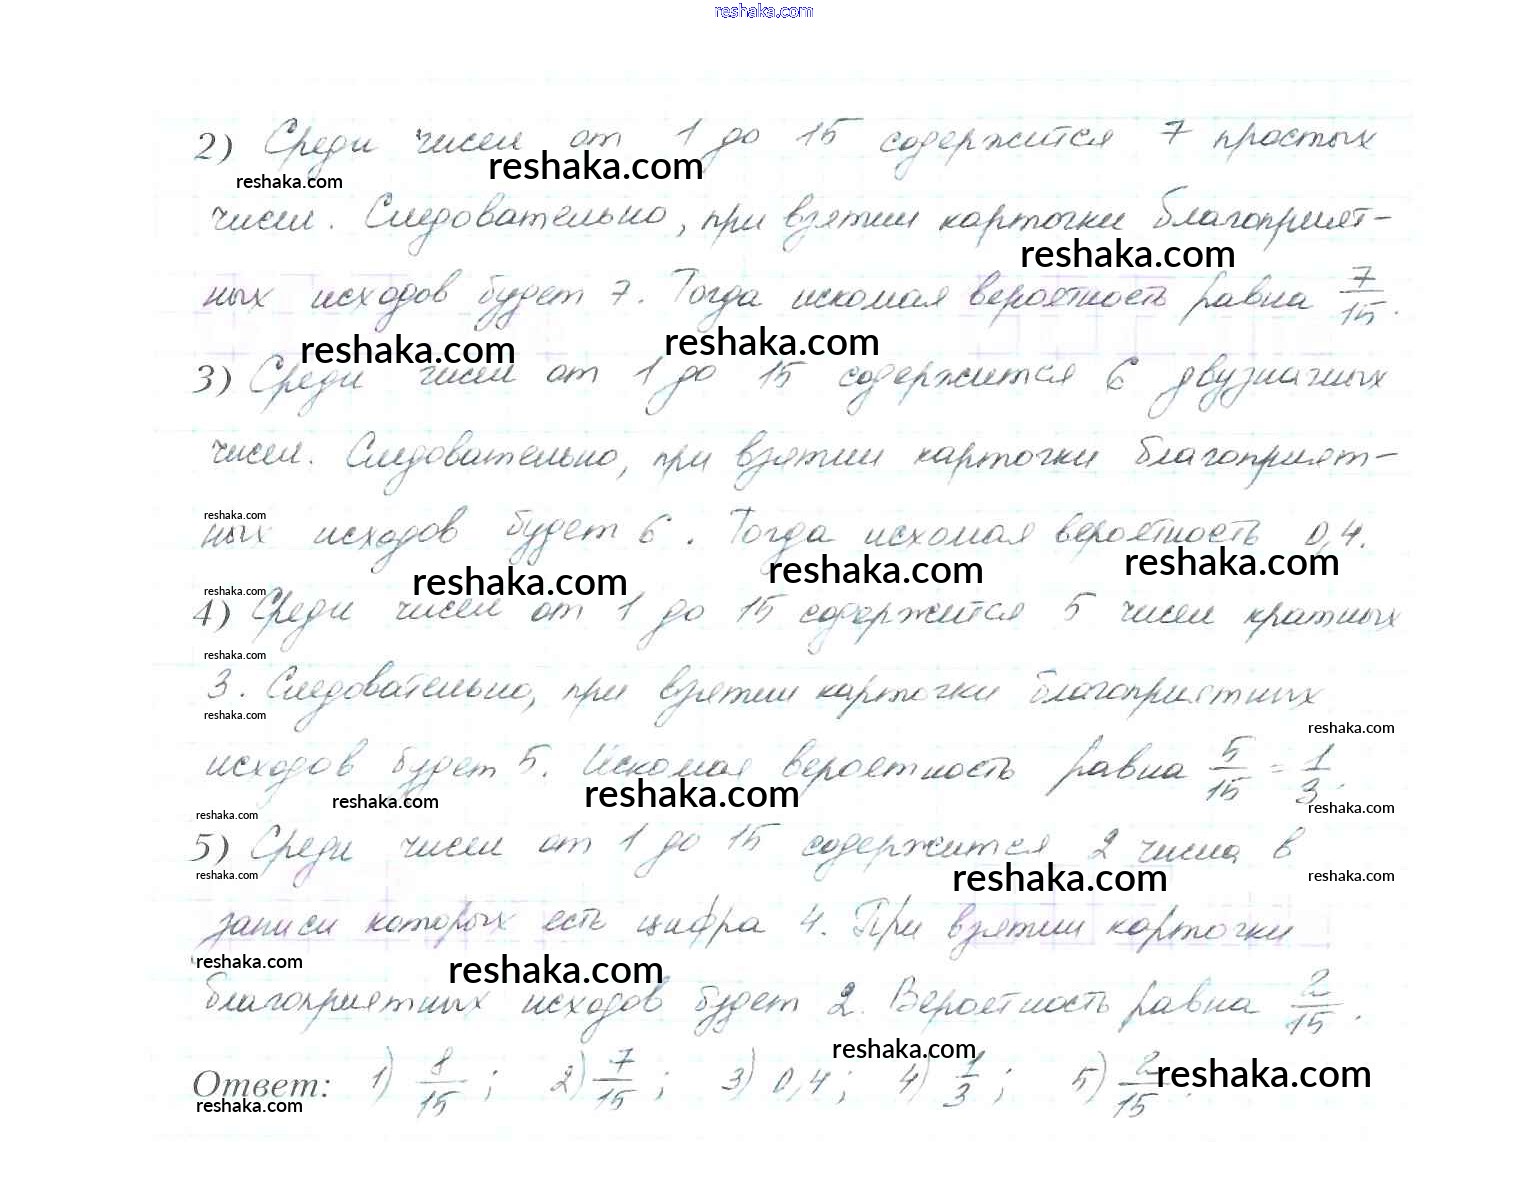 reshaka.com
2) Среди чисел от 1 до 15 содержится 7 простых
reshaka.com
reshaka.com
чисел. Следовательно, при взятии карточки благоприят-
reshaka.com
ных исходов будет 7. Тогда искомая вероятность равна 7/15.
reshaka.com reshaka.com
3) Среди чисел от 1 до 15 содержится 6 двузначных
чисел. Следовательно, при взятии карточки благоприят-
reshaka.com
ных исходов будет 6. Тогда искомая вероятность 0,4.
reshaka.com reshaka.com reshaka.com
reshaka.com
4) Среди чисел от 1 до 15 содержится 5 чисел кратных
reshaka.com
3. Следовательно, при взятии карточки благоприятных
reshaka.com
reshaka.com
исходов будет 5. Искомая вероятность равна 5/15 = 1/3.
reshaka.com reshaka.com reshaka.com
reshaka.com
5) Среди чисел от 1 до 15 содержится 2 числа в
reshaka.com reshaka.com reshaka.com
записи которых есть цифра 4. При взятии карточки
reshaka.com reshaka.com
благоприятных исходов будет 2. Вероятность равна 2/15.
reshaka.com
Ответ: 1) 8/15; 2) 7/15; 3) 0,4; 4) 1/3; 5) 2/15.
reshaka.com
reshaka.com